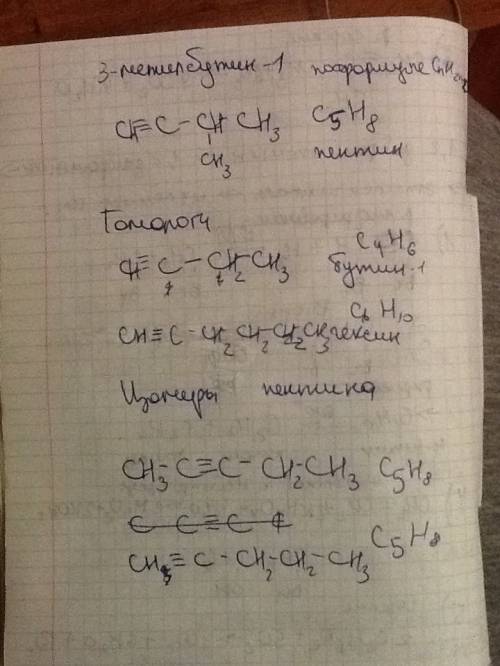 3-метилбутин-1 по формуле CnH2n-2
CH≡C-CH CH3 C5H8
CH3 пентин
Гомологи
CH≡C-CH2CH3 C4H6
бутин-1
C6H10
CH≡C-CH2CH2CH2CH3 гексин
Изомеры пентина
CH3-C≡C-CH2-CH3 C5H8
C C≡C C
CH≡C-CH2-CH2-CH3 C5H8